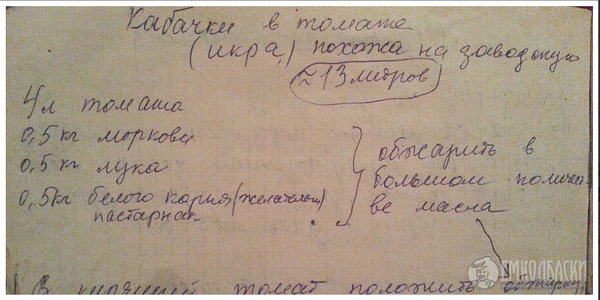 Кабачки в томате
(икра,) похожа на заводскую
≈13 литров
4л томата
0,5 кг моркови
0,5 кг лука
0,5кг белого корня (желательно)
пастарнак
обжарить в
большом количест
ве масла
В кипящий томат положить обжарку
УМКОЛБАСКИ